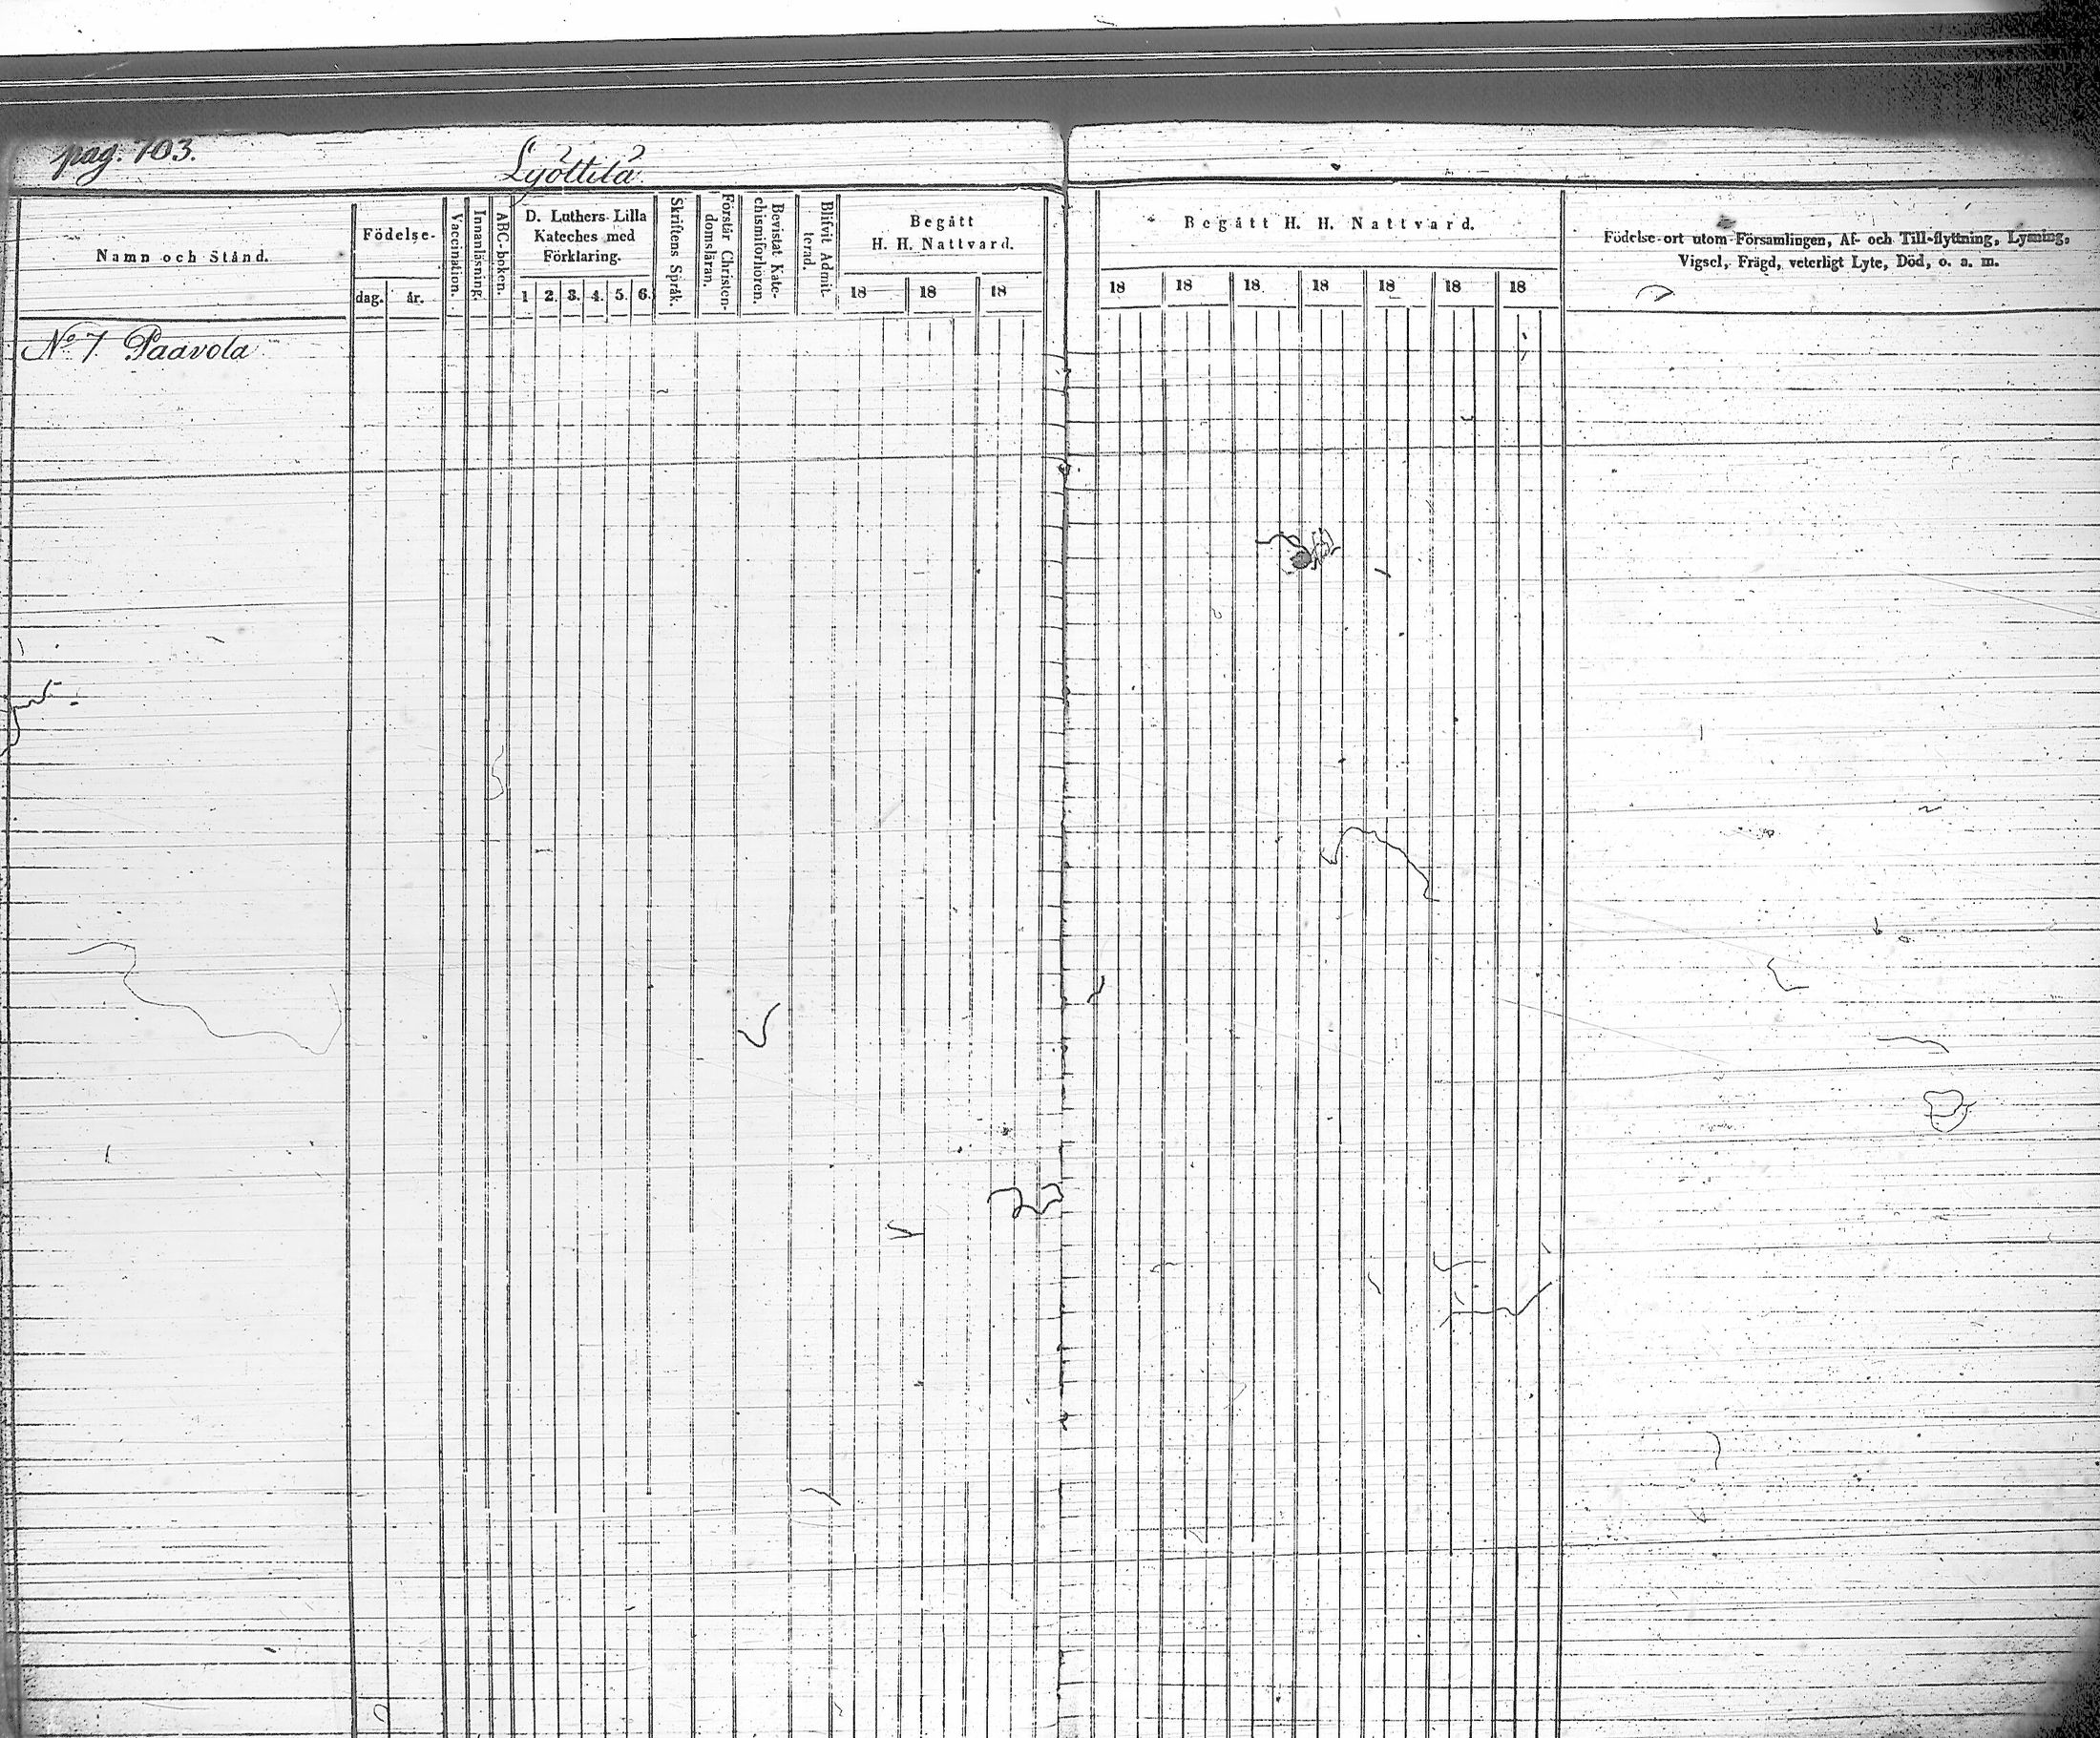 pag. 103.
Lyöttilä
Namn och Stånd.
Födelse-
dag.
år.
Vaccination.
Innanläsning.
ABC-boken.
D. Luthers Lilla
Kateches med
Förklaring.
1 2. 3. 4. 5. 6.
Skriftens Språk.
Förstår Christen-
domsläran.
Bevistat Kate-
chismiförhören.
Blifvit Admit-
terad.
Begått
H. H. Nattvard.
18 18 18
Begått H. H. Nattvard.
18 18 18 18 18 18 18
Födelse-ort utom Församlingen, Af- och Till-flyttning, Lysning,
Vigsel, Frägd, veterligt Lyte, Död, o. a. m.
No 7 Paavola